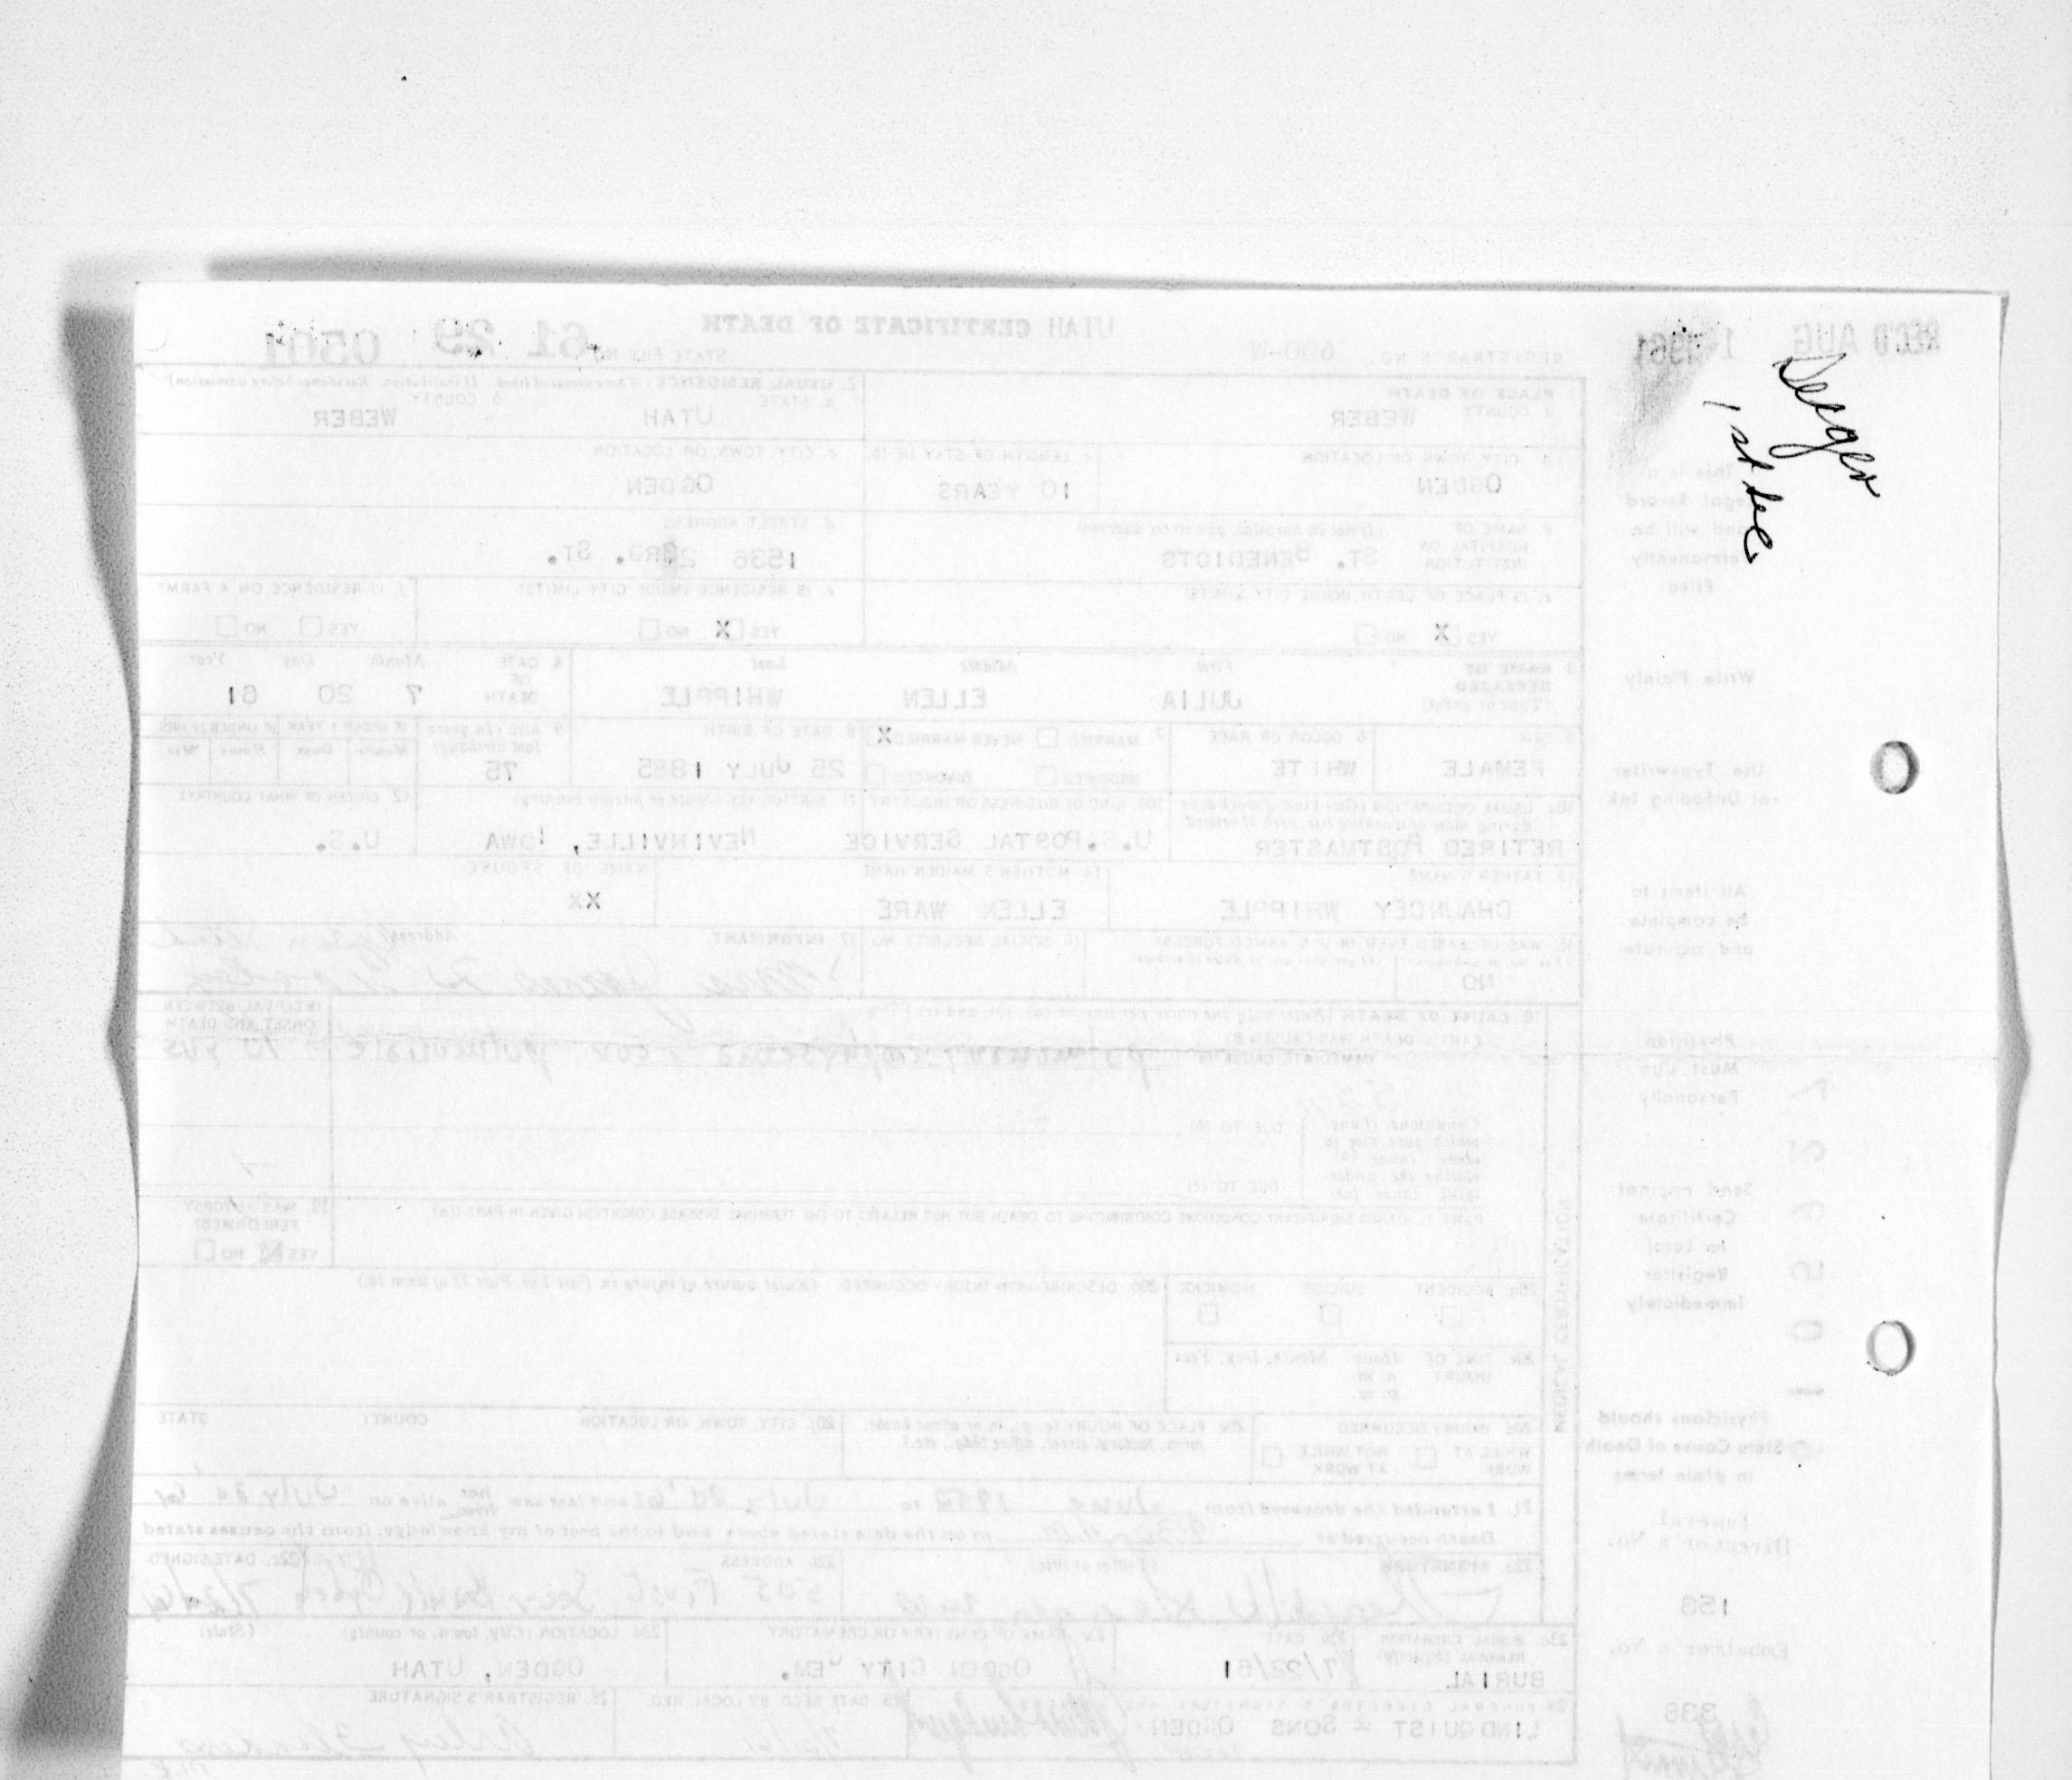 UTAH CERTIFICATE OF DEATH
REC'D AUG 1 1961
REGISTRAR'S NO. 600-W
STATE FILE NO. 61 29 0501
Seeger
1 st dec
This is a
Legal Record
and will be
Permanently
Filed
Write Plainly
Use Typewriter
or Unfading Ink
All items to
be complete
and accurate
Physician
Must Sign
Personally
Send original
Certificate
to Local
Registrar
Immediately
Physicians should
State Cause of Death
in plain terms
Funeral
Director's No.
153
Embalmer's No.
338
1. PLACE OF DEATH
a. COUNTY WEBER
2. USUAL RESIDENCE (Where deceased lived. If institution, Residence before admission)
a. STATE UTAH b. COUNTY WEBER
b. CITY, TOWN, OR LOCATION OGDEN
c. LENGTH OF STAY IN 1b 10 YEARS
c. CITY, TOWN, OR LOCATION OGDEN
d. NAME OF HOSPITAL OR INSTITUTION (If not in hospital, give street address) ST. BENEDICTS
d. STREET ADDRESS 1536 23RD. ST.
e. IS PLACE OF DEATH INSIDE CITY LIMITS? YES X NO
e. IS RESIDENCE INSIDE CITY LIMITS? YES X NO
f. IS RESIDENCE ON A FARM? YES NO
3. NAME OF DECEASED (Type or print) First JULIA Middle ELLEN Last WHIPPLE
4. DATE OF DEATH Month Day Year 7 20 61
5. SEX FEMALE
6. COLOR OR RACE WHITE
7. MARRIED NEVER MARRIED X WIDOWED DIVORCED
8. DATE OF BIRTH 25 JULY 1885
9. AGE (In years last birthday) 75
IF UNDER 1 YEAR Months Days
IF UNDER 24 HRS. Hours Min.
10a. USUAL OCCUPATION (Give kind of work done during most of working life, even if retired) RETIRED POSTMASTER
10b. KIND OF BUSINESS OR INDUSTRY U.S. POSTAL SERVICE
11. BIRTHPLACE (State or foreign country) NEVINVILLE, IOWA
12. CITIZEN OF WHAT COUNTRY? U.S.
13. FATHER'S NAME CHAUNCEY WHIPPLE
14. MOTHER'S MAIDEN NAME ELLEN WARE
NAME OF SPOUSE XX
15. WAS DECEASED EVER IN U.S. ARMED FORCES? NO
16. SOCIAL SECURITY NO.
17. INFORMANT Address
18. CAUSE OF DEATH (Enter only one cause per line for (a), (b), and (c))
INTERVAL BETWEEN ONSET AND DEATH
PART I. DEATH WAS CAUSED BY:
IMMEDIATE CAUSE (a) pulmonary emphysema & cor pulmonale 10 yrs
Conditions, if any, which gave rise to above cause (a) stating the underlying cause last
DUE TO (b)
DUE TO (c)
PART II. OTHER SIGNIFICANT CONDITIONS CONTRIBUTING TO DEATH BUT NOT RELATED TO THE TERMINAL DISEASE CONDITION GIVEN IN PART I(a)
19. WAS AUTOPSY PERFORMED? YES X NO
20a. ACCIDENT SUICIDE HOMICIDE
20b. DESCRIBE HOW INJURY OCCURRED (Enter nature of injury in Part I or Part II of item 18)
20c. TIME OF INJURY Hour Month, Day, Year a. m. p. m.
20d. INJURY OCCURRED WHILE AT WORK NOT WHILE AT WORK
20e. PLACE OF INJURY (e. g., in or about home, farm, factory, street, office bldg., etc.)
20f. CITY, TOWN, OR LOCATION COUNTY STATE
21. I attended the deceased from June 1952 to July 20 '61 and last saw her alive on July 20 '61
Death occurred at m on the date stated above, and to the best of my knowledge, from the causes stated
22a. SIGNATURE (Degree or title)
22b. ADDRESS
22c. DATE SIGNED
23a. BURIAL, CREMATION REMOVAL (Specify) BURIAL
23b. DATE 7/22/61
23c. NAME OF CEMETERY OR CREMATORY OGDEN CITY CEM.
23d. LOCATION (City, town, or county) (State) OGDEN, UTAH
24. FUNERAL DIRECTOR'S SIGNATURE AND ADDRESS LINDQUIST & SONS OGDEN
25. DATE REC'D BY LOCAL REG.
26. REGISTRAR'S SIGNATURE
MEDICAL CERTIFICATION